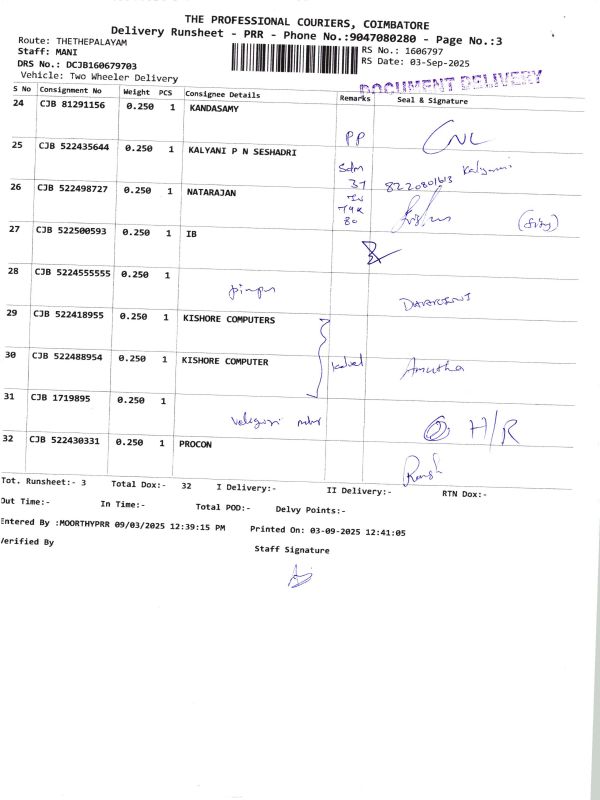 THE PROFESSIONAL COURIERS, COIMBATORE
Delivery Runsheet - PRR - Phone No.:9047080280 - Page No.:3
Route: THETHEPALAYAM
RS No.: 1606797
Staff: MANI
RS Date: 03-Sep-2025
DRS No.: DCJB160679703
Vehicle: Two Wheeler Delivery
DOCUMENT DELIVERY
S No Consignment No Weight PCS Consignee Details Remarks Seal & Signature
24 CJB 81291156 0.250 1 KANDASAMY PP
25 CJB 522435644 0.250 1 KALYANI P N SESHADRI
8220801613 Kalyani
26 CJB 522498727 0.250 1 NATARAJAN 37
80
27 CJB 522500593 0.250 1 IB
28 CJB 5224555555 0.250 1
29 CJB 522418955 0.250 1 KISHORE COMPUTERS
30 CJB 522488954 0.250 1 KISHORE COMPUTER Amutha
31 CJB 1719895 0.250 1 H/R
32 CJB 522430331 0.250 1 PROCON
Tot. Runsheet:- 3 Total Dox:- 32 I Delivery:- II Delivery:- RTN Dox:-
Out Time:- In Time:- Total POD:- Delvy Points:-
Entered By :MOORTHYPRR 09/03/2025 12:39:15 PM Printed On: 03-09-2025 12:41:05
Verified By
Staff Signature